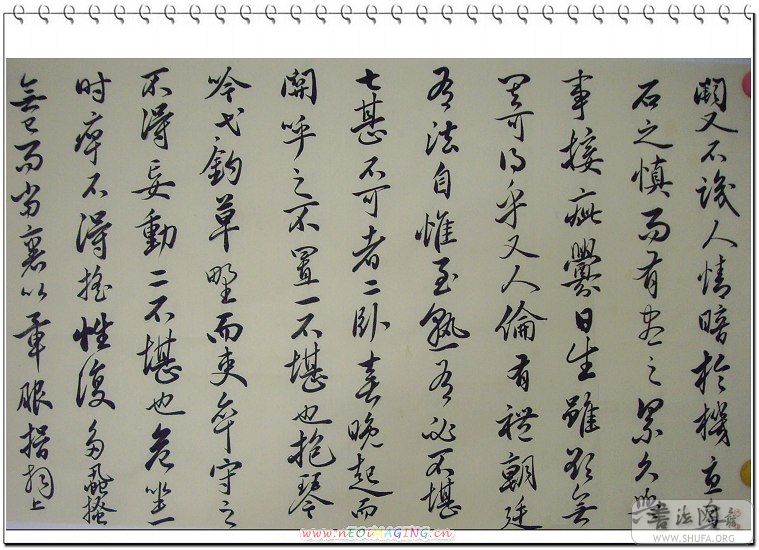 闕又不識人情暗於機宜
石之慎而有盡之累久與
事接疵釁日生雖欲無
其可得乎又人倫有禮朝廷
有法自惟至熟有必不堪
七甚不可者二卧喜晚起而
關呼之不置一不堪也抱琴
吟弋釣草野而吏卒守之
不得妄動二不堪也危坐一
時痹不得搖性復多虱搔
無已而當裹以章服揖拜上
www.nEOiMAGING.cn
書法海
WWW.SHUFA.ORG